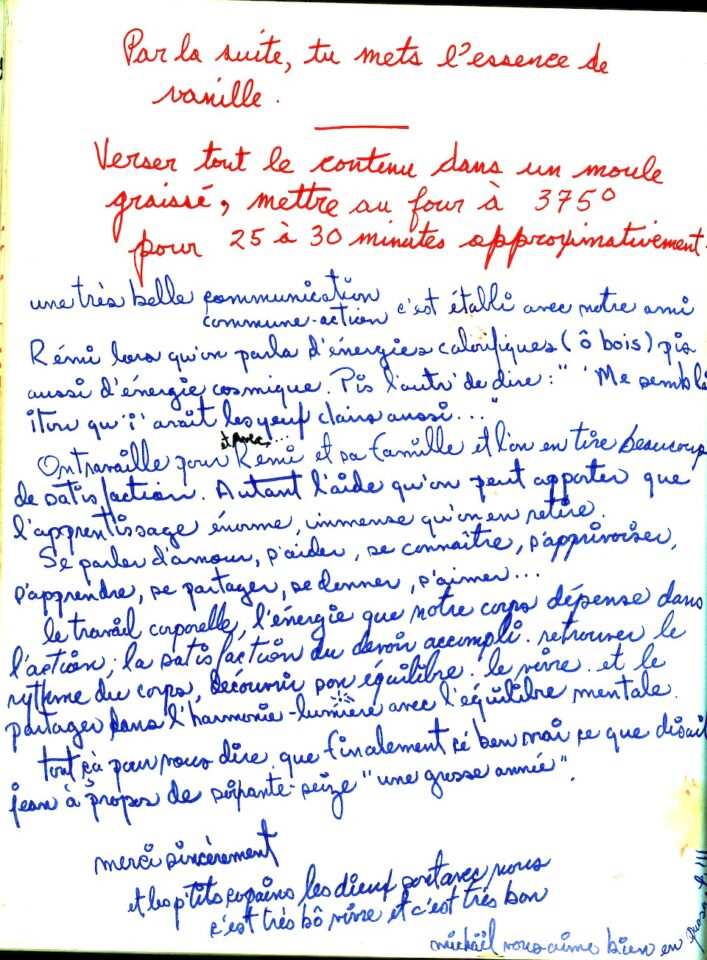 Par la suite, tu mets l'essence de
vanille.
Verser tout le contenu dans un moule
graissé, mettre au four à 375°
pour 25 à 30 minutes approximativement.
une très belle communication
commune-action c'est établi avec notre ami
Rémi lors qu'on parla d'énergies calorifiques (ô bois) pis
aussi d'énergie cosmique. Pis l'autr' de dire: " 'Me sembl
itou qu' i' avait les yeuf clairs aussi..."
et avec...
On travaille pour Rémi et sa famille et l'on en tire beaucoup
de satisfaction. Autant l'aide qu'on peut apporter que
l'apprentissage énorme, immense qu'on en retire.
Se parler d'amour, s'aider, se connaître, s'apprivoiser,
s'apprendre, se partager, se donner, s'aimer...
le travail corporelle, l'énergie que notre corps dépense dans
l'action; la satisfaction du devoir accompli. retrouver le
rythme du corps, découvrir son équilibre. le vivre. et le
partager dans l'harmonie-lumière avec l'équilibre mentale.
tout çà pour vous dire que finalement cé ben vrai ce que disait
jean à propos de soixante-seize "une grosse année".
merci sincèrement
et les p'tits copains les dieux sont avec nous
c'est très bô vivre et c'est très bon
mickaël vous aime bien en